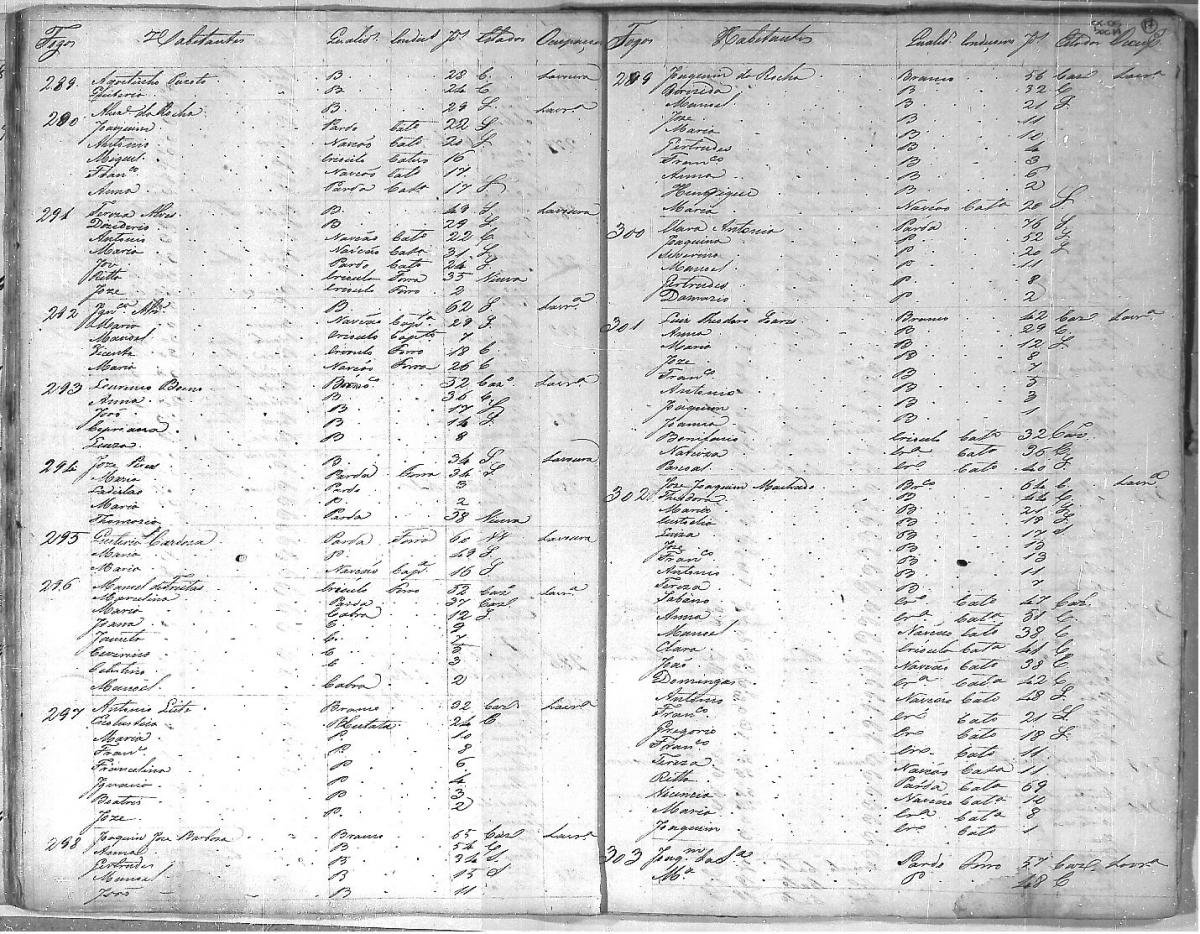 Fogos Habitantes Qualid. Conduct. Id. Estados Ocupação
289 Agostinho B. 28 C. Lavoura
B 24 C
290 da Rocha B. 29 S. Lavra
Joaquim Pardo Cato 22 S
Antonio Nasção Cato 20 S
Miguel Crioulo Cativo 16
Franco Nasção Cato 17
Anna Parda Cata 17 S
291 Tereza Alves B. 49 S. Lavoura
Deziderio B 29 S.
Antonio Nasção Cato 22 C
Maria Nasção Cata 31 S
Pardo Cato 24 S
Ritta Crioula Forra 35 Viuva
Joze Crioulo Forro 2
292 B 62 S. Lavra
Maria Nasção Capta 29 S.
Manoel Crioulo Capto 7
Vicente Crioulo Forro 18 C
Maria Nasção Forra 26 C
293 Lourenço Bueno Branco 32 Cazo Lavra
Anna B. 36 C.
João B. 17 S
Cypriana B 14 S.
Luiza B 8
294 Joze Pires B 34 S Lavoura
Maria Parda Forra 34 S
Ladislao Pardo 3
Maria P. 2
Parda 38 Viuva
295 Cardoza Parda Forra 60 Va Lavoura
Maria P. 49 S
Maria Nasção Capta 16 S.
296 Manoel de Freitas Crioulo Forro 52 Cazo Lavra
Marcelina Parda 37 Caz
Maria Cabra 12 S
Joana C 9
C. 7
C 5
C 3
Manoel Cabra 2
297 Antonio Leite Branco 32 Caz Lavra
Escolastica 24 C
Maria P 10
Franco P. 8
Francelina P 6
Ignacio P 4
Beatris P 3
Joze P. 2
298 Joaquim Joze Barboza Branco 65 Caz Lavra
B 54 C
Gertrudes B 34 S
Manoel B 13 S
João B 11
Fogos Habitantes Qualid. Id. Estados
299 Joaquim da Rocha Branco 56 Caz Lavra
B 32 C
Manoel B 21 S.
Joze B 11
Maria B 10
Gertrudes B 4
Franco B 3
Anna B 6
Henrique B 2
Maria Nasção Cata 20 S
300 Antonia Parda 76 S
Joaquina P 52 S
Severino P. 20 S
Manoel P 11
Gertrudes P 8
Damazio P 2
301 Luis Theodoro Branco 42 Caz Lavra
Anna B 29 C.
Maria B 12 S
Joze B 8
Franco B 7
Antonio B 5
Joaquim B 3
Joanna B 1
Bonifacio Crioulo Cato 32 Cazo
Cra Cata 35 C
Pascoal Cro Cato 40 S
302 Joze Joaquim Machado Bco 64 C. Lavra
Theodora B 44 C
Maria B 21 S
Eustachio B 18 S
Luiza B 17 S
Joze B 15
Franco B 13
Antonio B 11
Tereza B 7
Sabino Cro Cato 47 Caz
Anna Cra Cata 31 C
Manoel Nasção Cato 38 C
Clara Crioula Cata 41 C
João Nasção Cato 38 C
Domingas Cra Cata 42 C
Antonio Nasção Cato 48 S.
Franco Cro Cato 21 S.
Gregorio Cro Cato 18 S
Franco Cro Cato 11
Tereza Nasção Cata 11
Ritta Parda Cata 69
Vicencia Nasção Cata 10
Maria Cra Cata 8
Joaquim Cro Cato 1
303 Pardo Forro 57 Caz Lavra
Ma P 48 C